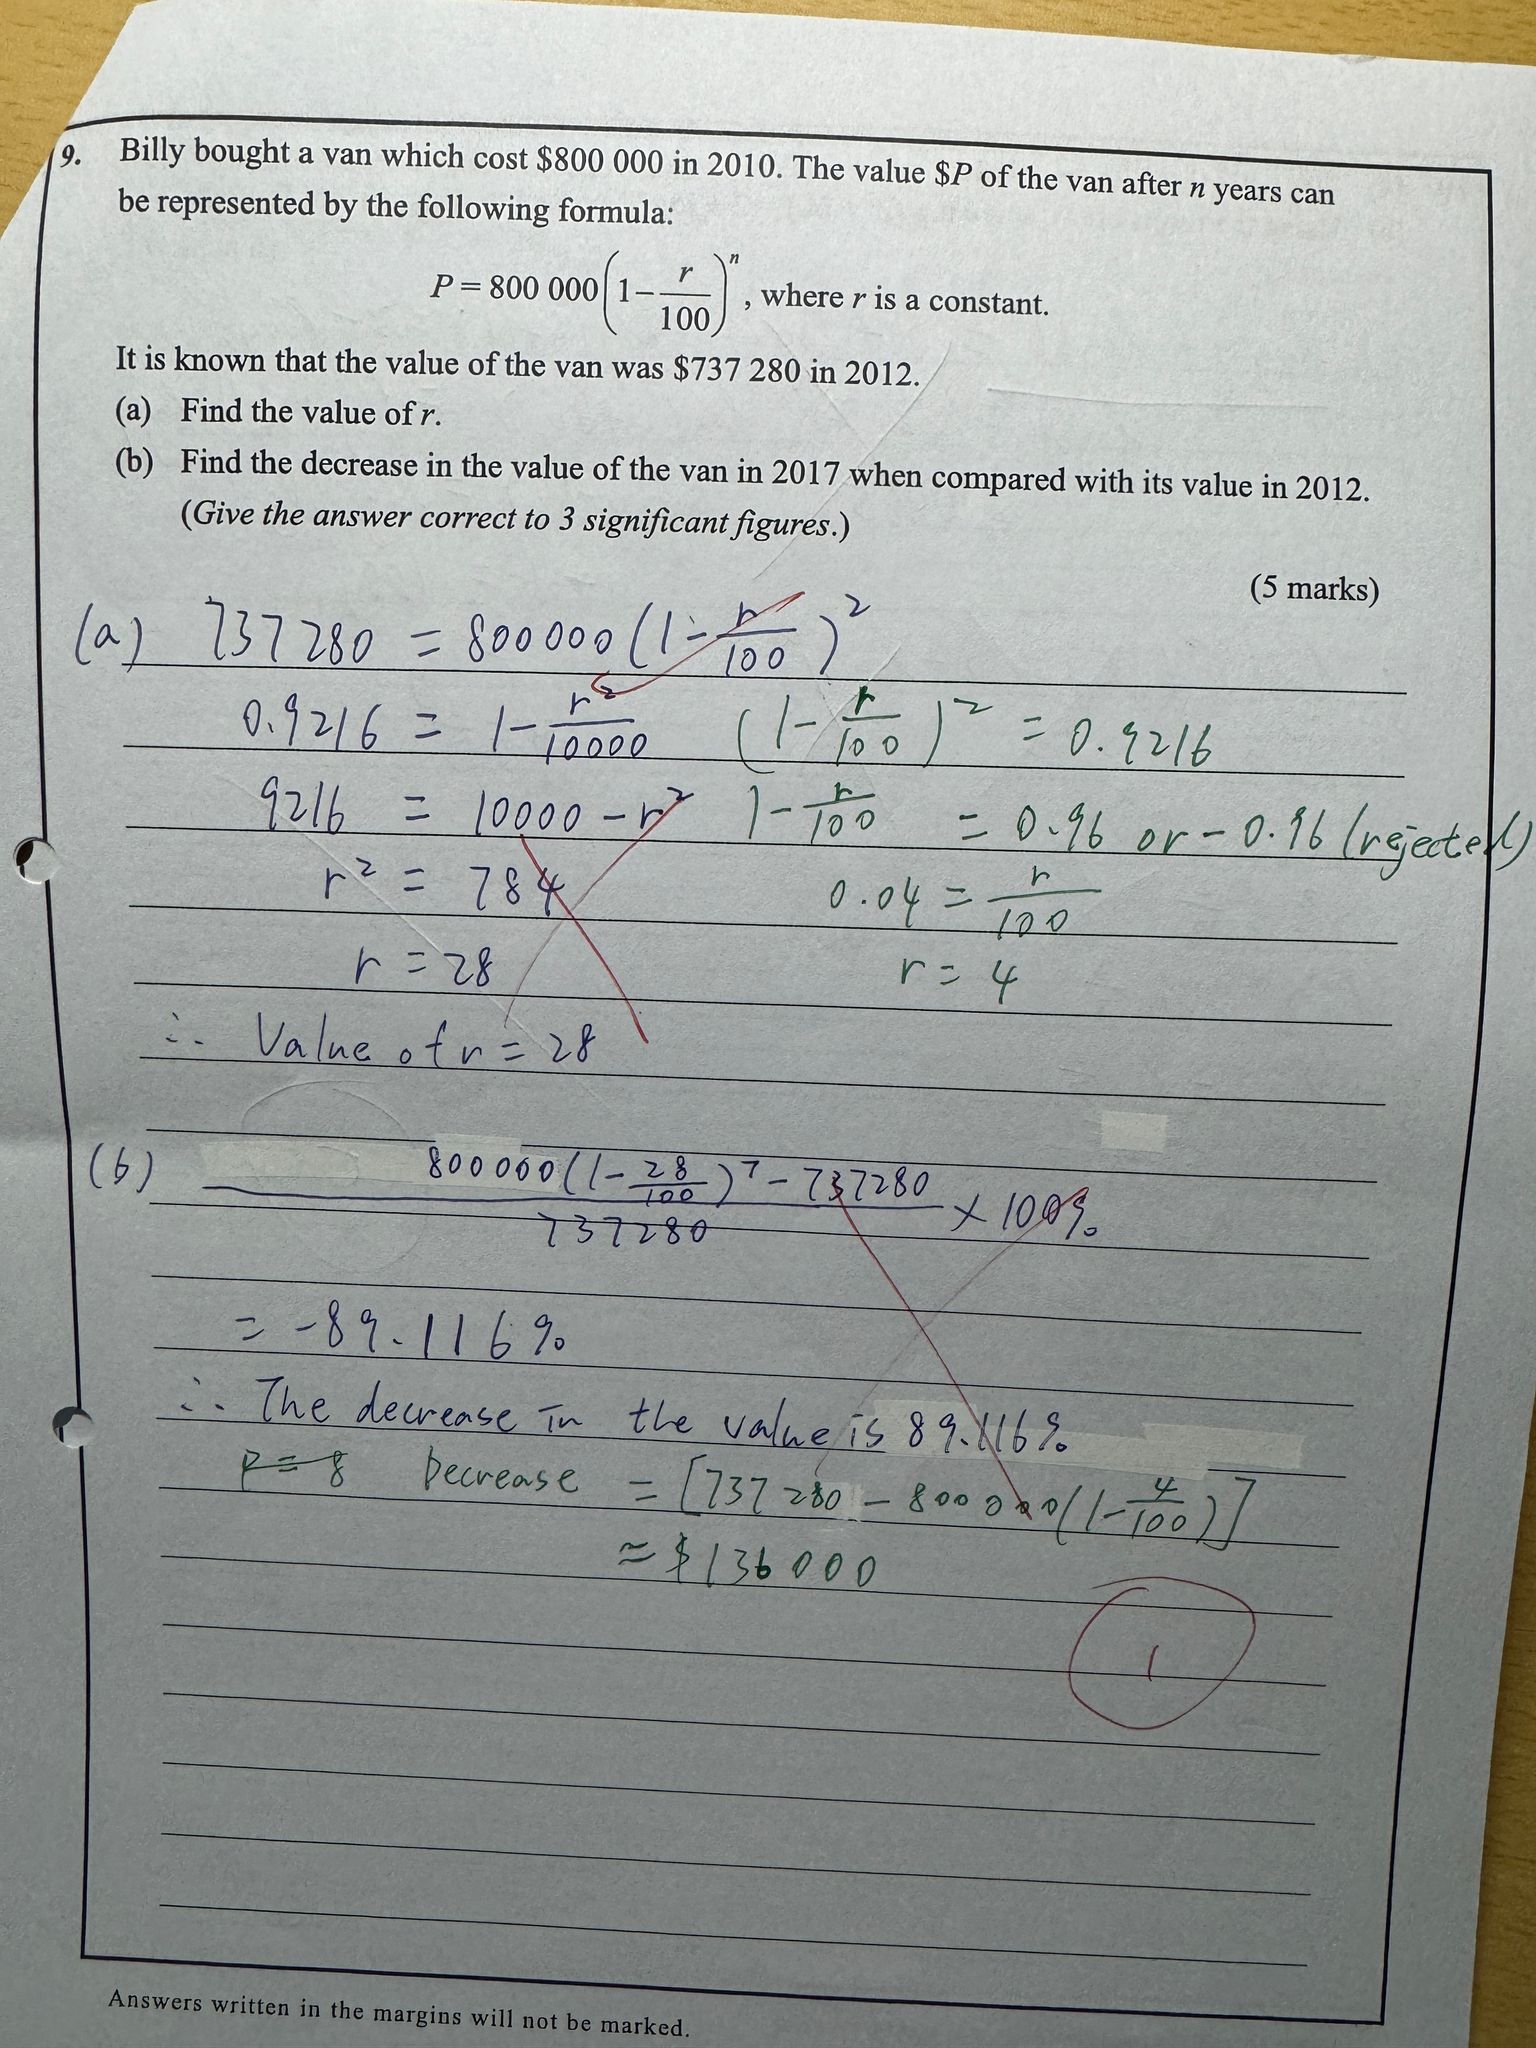 9. Billy bought a van which cost $800 000 in 2010. The value $P of the van after n years can
be represented by the following formula:
P = 800 000(1 − r/100)^n, where r is a constant.
It is known that the value of the van was $737 280 in 2012.
(a) Find the value of r.
(b) Find the decrease in the value of the van in 2017 when compared with its value in 2012.
(Give the answer correct to 3 significant figures.)
(5 marks)
(a) 737280 = 800000(1 - r/100)^2
0.9216 = 1 - r^2/10000 (1 - r/100)^2 = 0.9216
9216 = 10000 - r^2 1 - r/100 = 0.96 or -0.96 (rejected)
r^2 = 784 0.04 = r/100
r = 28 r = 4
∴ Value of r = 28
(b) (800000(1 - 28/100)^7 - 737280)/737280 × 100%
= -89.116%
∴ The decrease in the value is 89.116%
P = 8 Decrease = [737280 - 800000(1 - 4/100)]
≈ $136000
1
Answers written in the margins will not be marked.